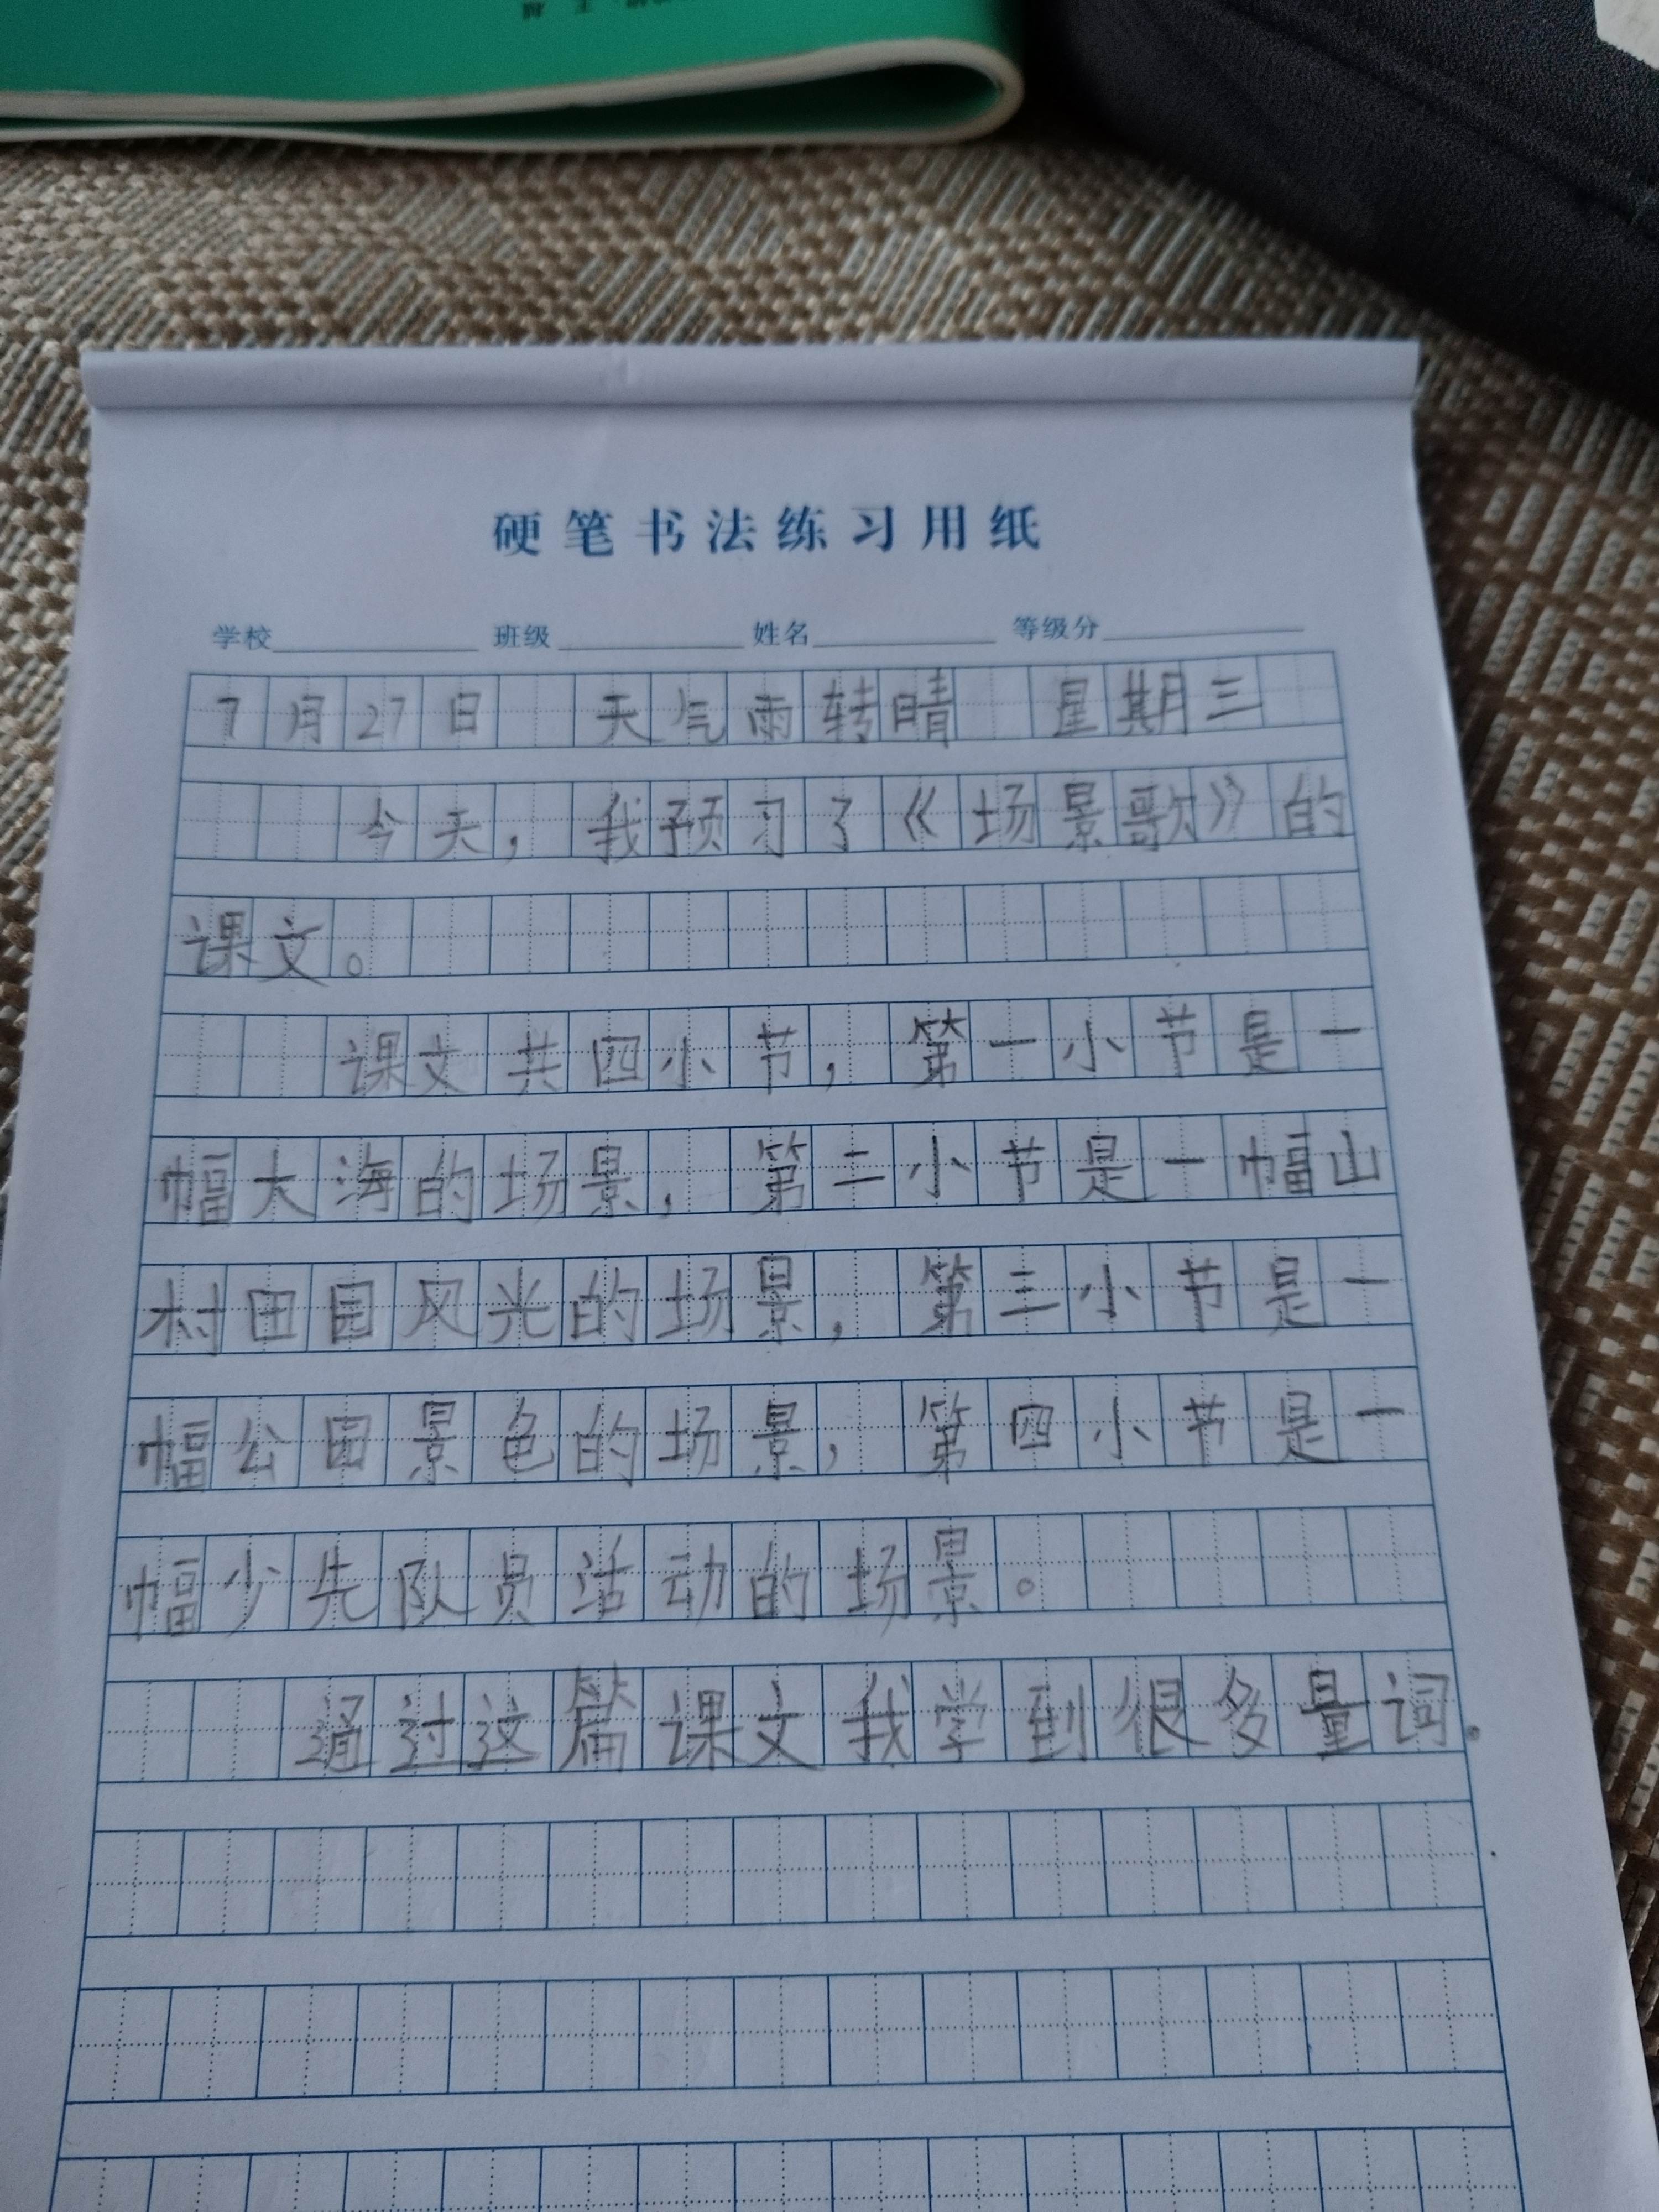 硬笔书法练习用纸
学校 班级 姓名 等级分
7月27日 天气雨转晴 星期三
今天，我预习了《场景歌》的
课文。
课文共四小节，第一小节是一
幅大海的场景，第二小节是一幅山
村田园风光的场景，第三小节是一
幅公园景色的场景，第四小节是一
幅少先队员活动的场景。
通过这篇课文我学到很多量词。